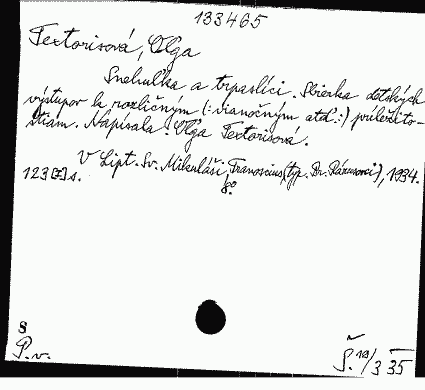 133465
Textorisová, Oľga
Snehuľka a trpaslíci. Sbierka detských
výstupov k rozličným (: vianočným atď. :) príležito-
stiam. Napísala: Oľga Textorisová.
V Lipt. Sv. Mikuláši, Tranoscius, (typ. Dr. Rázusovci), 1934.
123 [I] s. 8°
§
P. v.
Š. 19/3 35